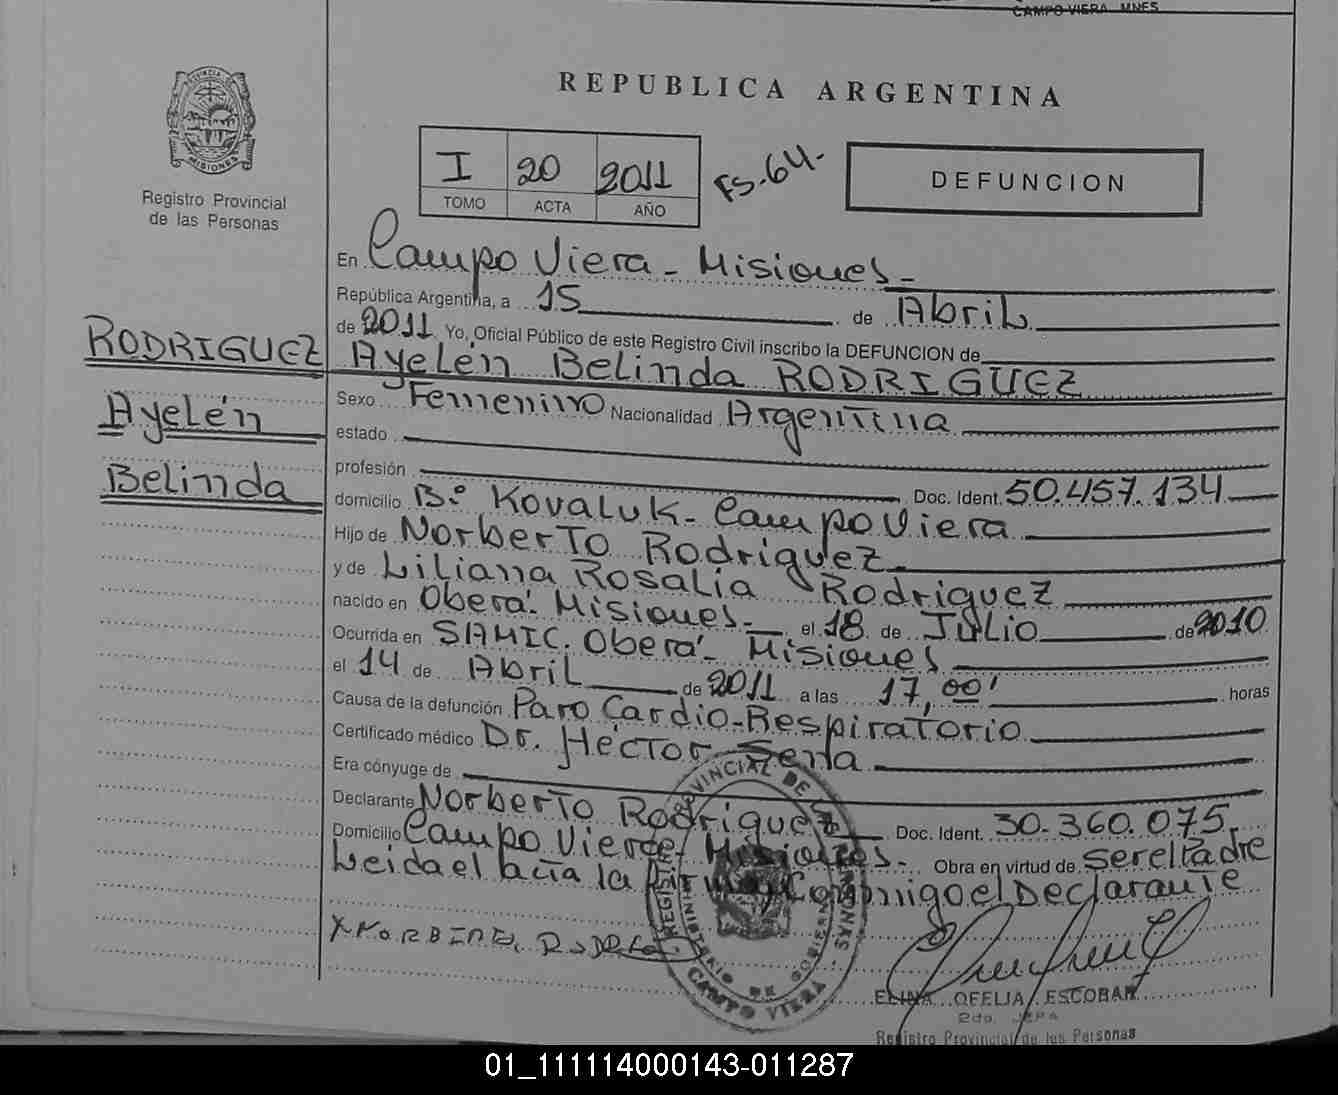 CAMPO VIERA MNES
REPUBLICA ARGENTINA
PROVINCIA DE
MISIONES
Registro Provincial
de las Personas
I 20 2011
TOMO ACTA AÑO
FS-64-
DEFUNCION
En Campo Viera - Misiones -
República Argentina, a 15 de Abril
de 2011 Yo, Oficial Público de este Registro Civil inscribo la DEFUNCION de
RODRIGUEZ Ayelén Belinda RODRIGUEZ
Ayelén
Belinda
Sexo Femenino Nacionalidad Argentina
estado
profesión Doc. Ident. 50.457.134
domicilio Bº Kovaluk - Campo Viera
Hijo de Norberto Rodriguez
y de Liliana Rosalia Rodriguez
nacido en Oberá. Misiones - el 18 de Julio de 2010
Ocurrida en SAMIC. Oberá - Misiones
el 14 de Abril de 2011 a las 17,00' horas
Causa de la defunción Paro Cardio-Respiratorio
Certificado médico Dr. Héctor Sena
Era cónyuge de
Declarante Norberto Rodriguez Doc. Ident. 30.360.075
Domicilio Campo Viera Misiones - Obra en virtud de ser el Padre
Leida el acta la Firma Conmigo el Declarante
REGISTRO PROVINCIAL DE
MINISTERIO DE GOBIERNO
CAMPO VIERA
ELINA OFELIA ESCOBAR
2do. JEFA
Registro Provincial de las Personas
01_111114000143-011287